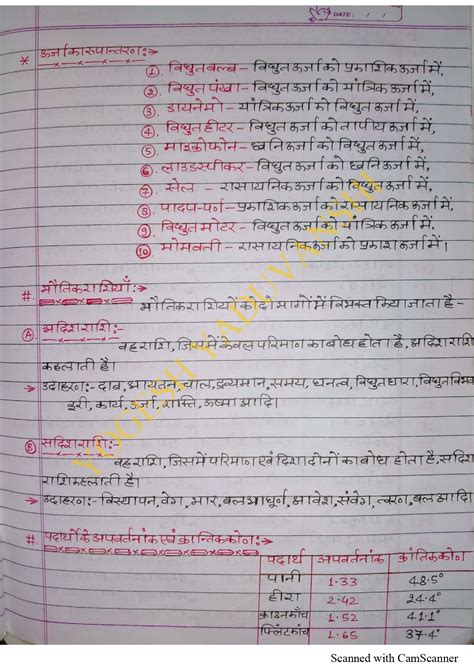 DATE: / /
* ऊर्जा का रूपान्तरण:→
①. विधुत बल्ब – विधुत ऊर्जा को प्रकाशिक ऊर्जा में,
②. विधुत पंखा – विधुत ऊर्जा को यांत्रिक ऊर्जा में,
③. डायनेमो – यांत्रिक ऊर्जा को विधुत ऊर्जा में,
④. विधुत हीटर – विधुत ऊर्जा को तापीय ऊर्जा में,
⑤. माइक्रोफोन – ध्वनि ऊर्जा को विधुत ऊर्जा में,
⑥. लाउडस्पीकर – विधुत ऊर्जा को ध्वनि ऊर्जा में,
⑦. सेल – रासायनिक ऊर्जा को विधुत ऊर्जा में,
⑧. पादप-पर्ण – प्रकाशिक ऊर्जा को रासायनिक ऊर्जा में,
⑨. विधुत मोटर – विधुत ऊर्जा को यांत्रिक ऊर्जा में,
⑩. मोमबत्ती – रासायनिक ऊर्जा को प्रकाश ऊर्जा में।
# भौतिक राशियाँ:→
भौतिक राशियों को दो भागों में विभक्त किया जाता है –
Ⓐ. अदिश राशि:-
वह राशि, जिसमें केवल परिमाण का बोध होता है, अदिश राशि
कहलाती है।
→ उदाहरण:- दाब, आयतन, चाल, द्रव्यमान, समय, घनत्व, विधुत धारा, विधुत विभव
दूरी, कार्य, ऊर्जा, शक्ति, ऊष्मा आदि।
Ⓑ. सदिश राशि:-
वह राशि, जिसमें परिमाण एवं दिशा दोनों का बोध होता है, सदिश
राशि कहलाती है।
→ उदाहरण:- विस्थापन, वेग, भार, बल आघूर्ण, आवेश, संवेग, त्वरण, बल आदि।
# पदार्थों के अपवर्तनांक एवं क्रान्तिक कोण:→
पदार्थ अपवर्तनांक क्रांतिक कोण
पानी 1.33 48.5°
हीरा 2.42 24.4°
क्राउन काँच 1.52 41.1°
फ्लिंट काँच 1.65 37.4°
YOGESH YADUVANSHI
Scanned with CamScanner